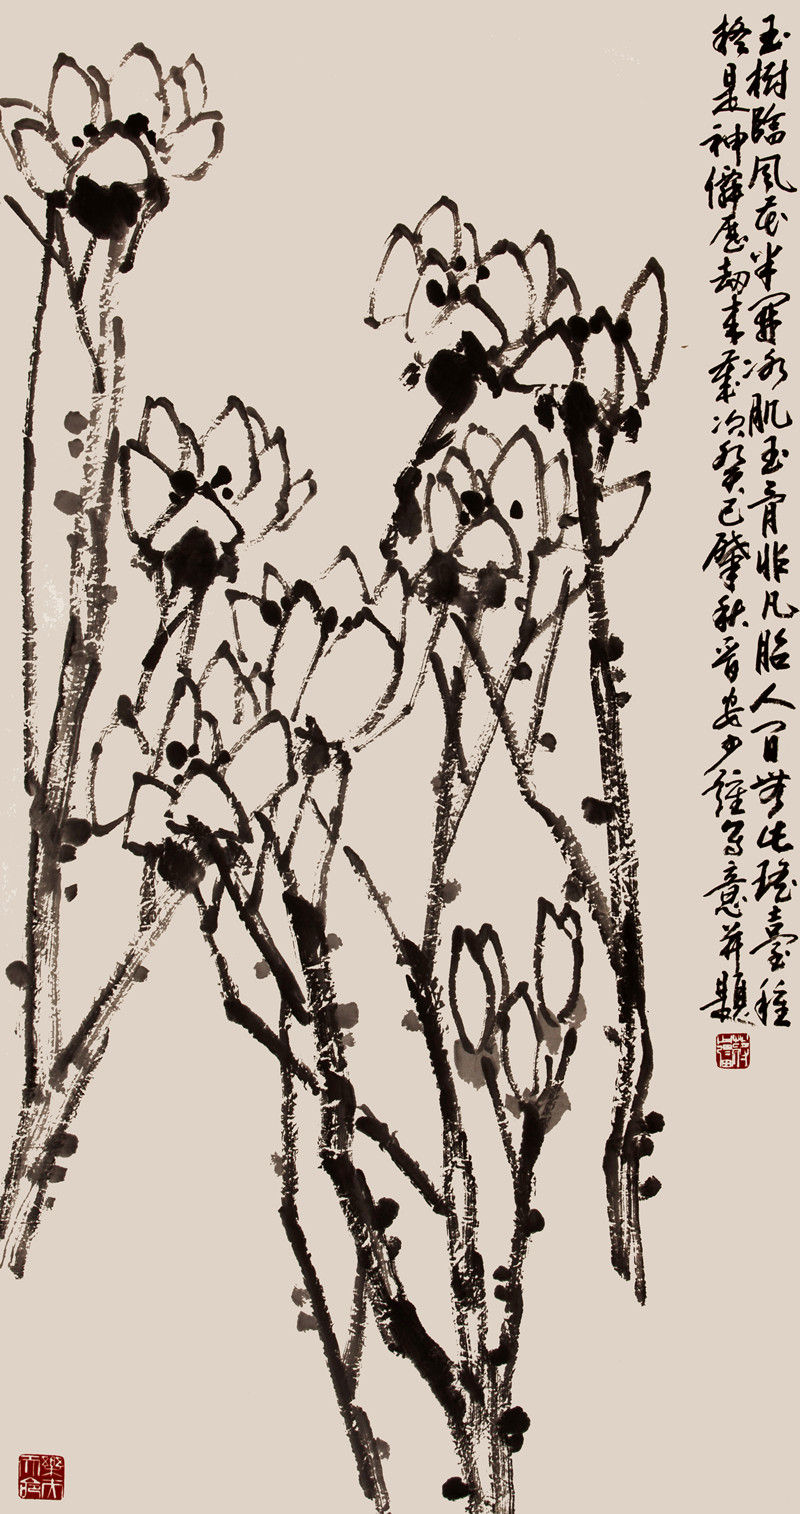 玉樹臨風花半開冰肌玉骨非凡胎人間無此瑤臺種
終是神僊歷劫來歲次癸巳肇秋晉安少寫意并題